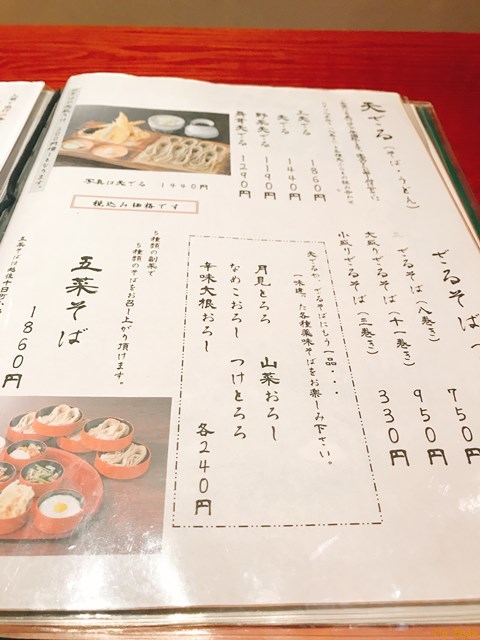 天ざる(そば・うどん)
上天ざる 1860円
天ざる 1440円
野菜天ざる 1190円
舞茸天ざる 1290円
写真は天ざる 1440円
税込み価格です
ざるそば
ざるそば(八巻き) 750円
大盛りざるそば(十一巻き) 950円
小盛りざるそば(三巻き) 330円
天ざるや、ざるそばにもう一品・・・
一味違った各種薬味そばをお楽しみ下さい。
月見とろろ 山菜おろし
なめこおろし つけとろろ
辛味大根おろし 各240円
5種類の副菜で
5種類のそばをお召し上がり頂けます。
五菜そば
1860円